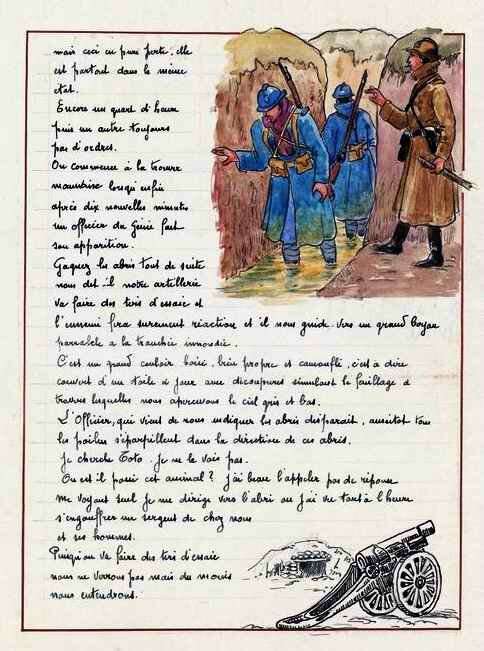 mais ceci en pure perte, elle
est partout dans le même
état.
Encore un quart d'heure
puis un autre toujours
pas d'ordres.
On commence à la trouver
mauvaise lorsqu'enfin
après dix nouvelles minutes
un officier du Génie fait
son apparition.
Gagnez les abris tout de suite
nous dit il notre artillerie
va faire des tirs d'essaie et
l'ennemi fera surement réaction et il nous guide vers un grand boyau
parralele a la tranchée innondée.
C'est un grand couloir boisé, bien propre et camouflé, c'est à dire
couvert d'un toile à jour avec decoupures simulant le feuillage à
travers lesquelles nous apercevons le ciel gris et bas.
L'Officier, qui vient de nous indiquer les abris disparait, aussitot tous
les poilus s'eparpillent dans la direction de ces abris.
Je cherche Toto. Je ne le vois pas.
Ou est il passé cet animal? j'ai beau l'appeler pas de réponse
me voyant seul je me dirige vers l'abri ou j'ai vu tantôt à l'heure
s'engouffrer un sergent de chez nous
et ses hommes.
Puisqu'on va faire des tirs d'essaie
nous ne verrons pas mais du moins
nous entendrons.